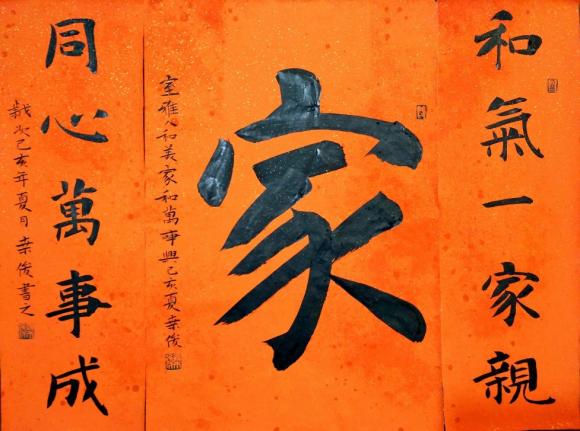 和氣一家親
家
室雅人和美家和萬事興己亥夏葉俊
同心萬事成
歲次己亥年夏月葉俊書之